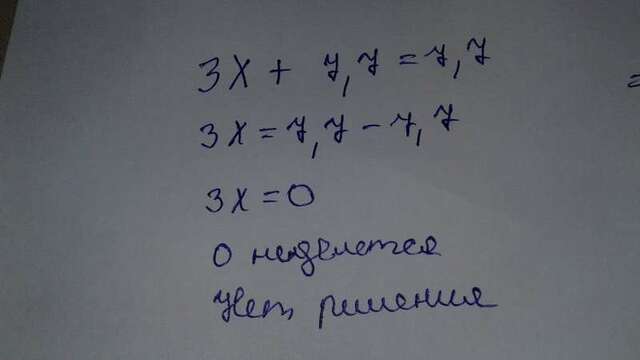 3x + 7,7 = 7,7
3x = 7,7 - 7,7
3x = 0
0 неделется
Нет ришения
=